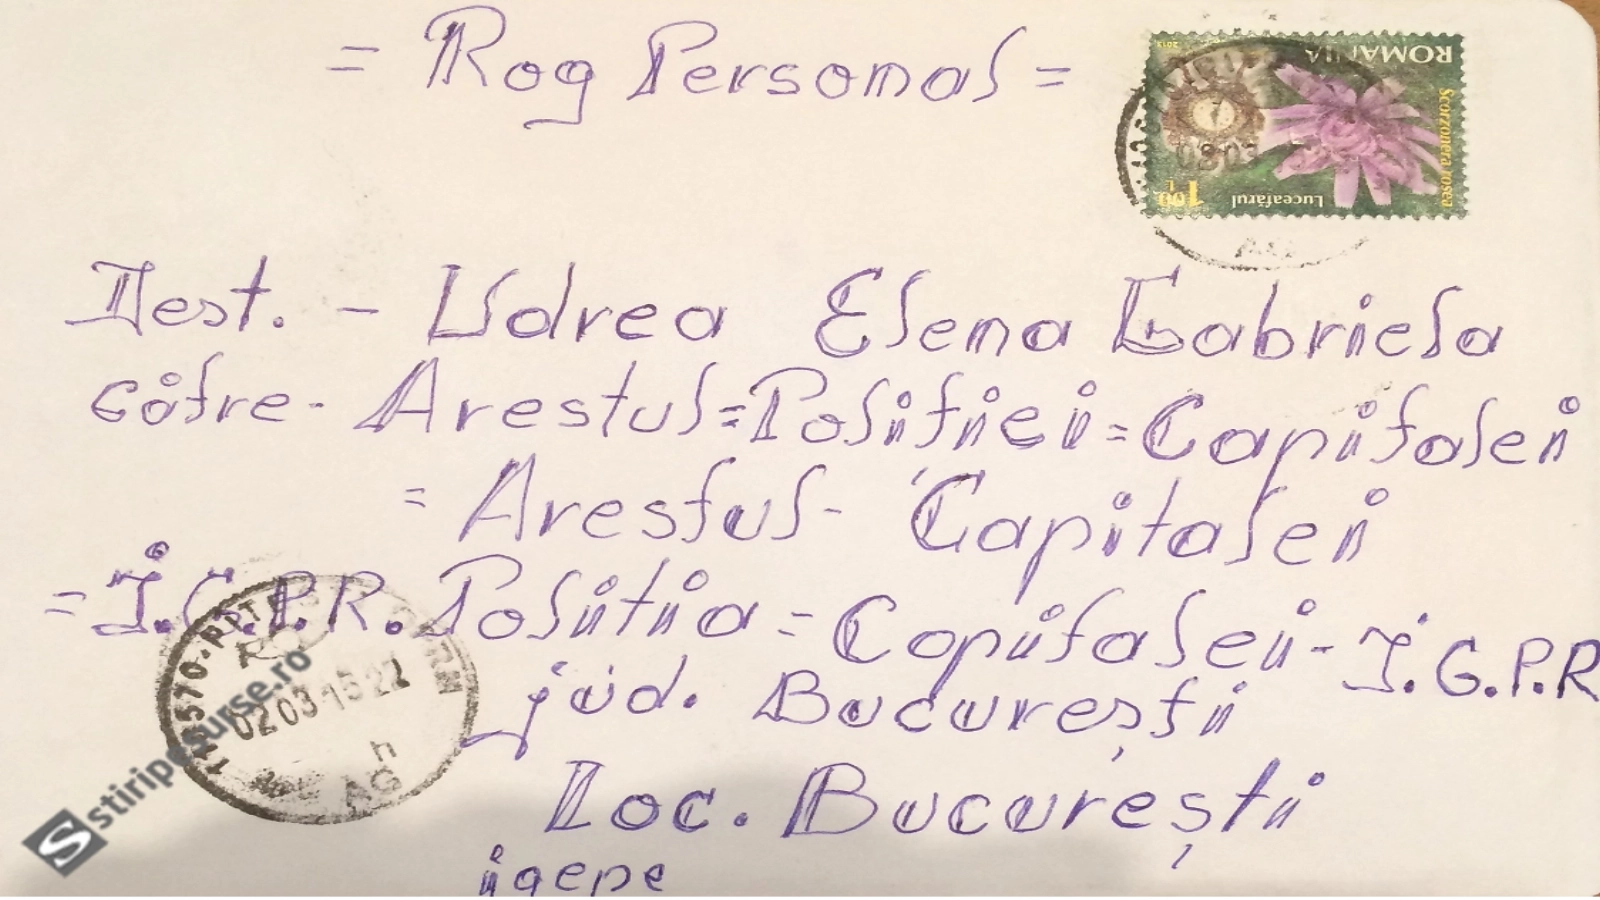 = Rog Personal =
ROMANIA
2013
Scorzonera rosea
Luceafărul
1,00 L
02 03
Dest. - Udrea Elena Gabriela
cátre - Arestul = Politiei = Capitalei
= Arestul - Capitalei
= I.G.P.R. Politia = Capitalei - I.G.P.R
jud. București
Loc. București
igepe
02 03 15 22
h
AG
stiripesurse.ro